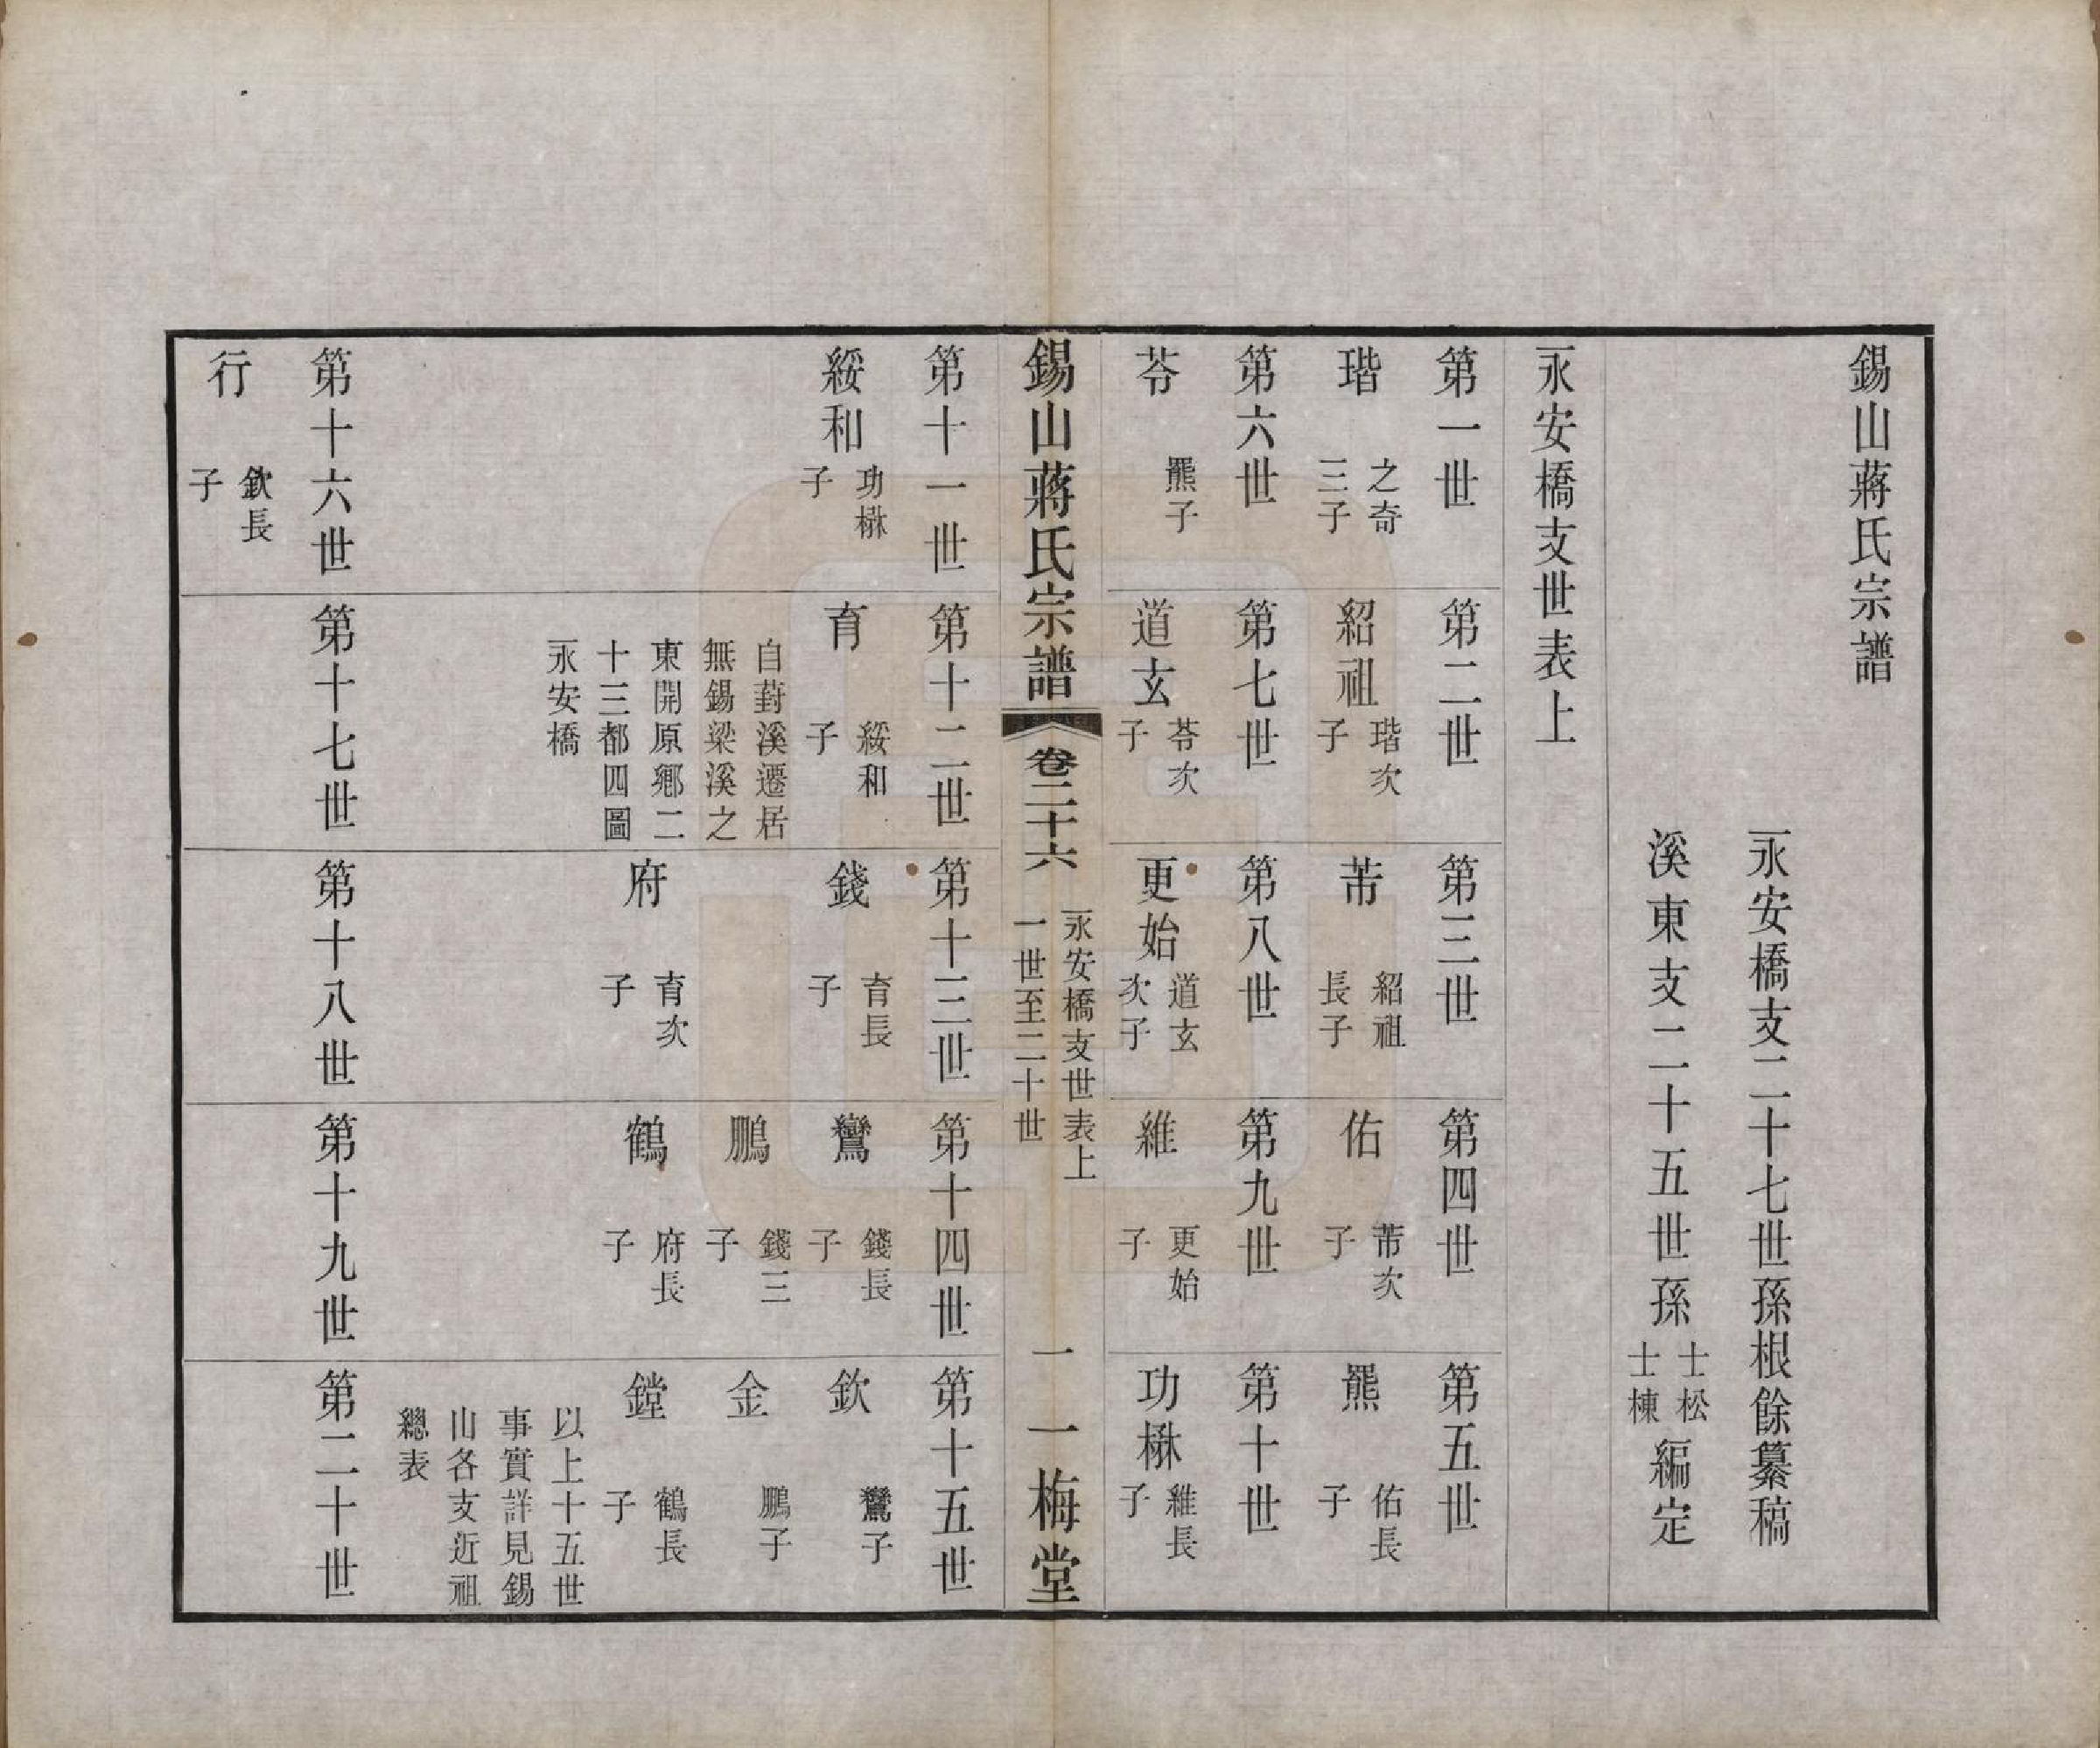 錫山蔣氏宗譜
永安橋支二十七世孫根餘纂稿
溪東支二十五世孫士松士棟編定
永安橋支世表上
第一世
瑎 之奇三子
第二世
紹祖 瑎次子
第三世
芾 紹祖長子
第四世
佑 芾次子
第五世
羆 佑長子
第六世
苓 羆子
第七世
道玄 苓次子
第八世
更始 道玄次子
第九世
維 更始子
第十世
功楙 維長子
錫山蔣氏宗譜 卷二十六 永安橋支世表上 一世至二十世 一 一梅堂
第十一世
綏和 功楙子
第十二世
育 綏和子
自葑溪遷居
無錫梁溪之
東開原鄉二
十三都四圖
永安橋
第十三世
錢 育長子
府 育次子
第十四世
鸞 錢長子
鵬 錢三子
鶴 府長子
第十五世
欽 鸞子
金 鵬子
鏜 鶴長子
以上十五世
事實詳見錫
山各支近祖
總表
第十六世
行 欽長子
第十七世
第十八世
第十九世
第二十世